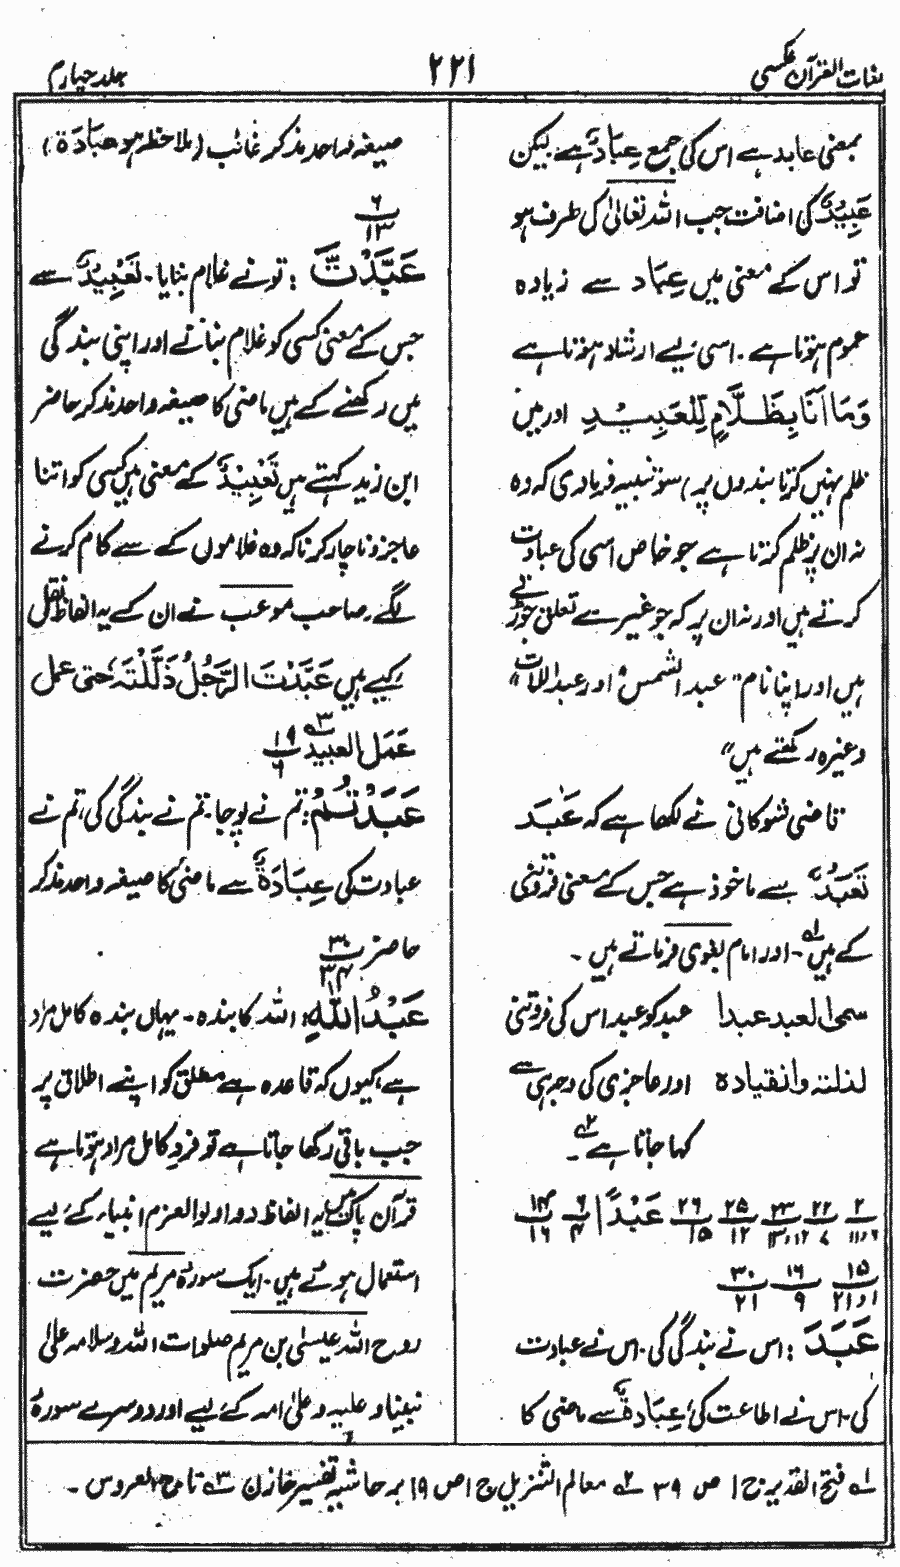 لغات القرآن عکسی
۲۲۱
جلد چہارم
بمعنی عابد ہے اس کی جمع عِبَادٌ ہے لیکن
عَبِیْدٌ کی اضافت جب اللہ تعالیٰ کی طرف ہو
تو اس کے معنی میں عِبَاد سے زیادہ
عموم ہوتا ہے۔ اسی لیے ارشاد ہوتا ہے
وَمَا اَنَا بِظَلَّامٍ لِّلْعَبِیْدِ اور میں
ظلم نہیں کرتا بندوں پر، سو تنبیہ فرمادی کہ وہ
نہ ان پر ظلم کرتا ہے جو خاص اسی کی عبادت
کرتے ہیں اور نہ ان پر کہ جو غیر سے تعلق جوڑتے
ہیں اور اپنا نام "عبد الشمس" اور عبد اللات"
وغیرہ رکھتے ہیں"
قاضی شوکانی نے لکھا ہے کہ عَبَدَ
تَعَبُّدٌ سے ماخوذ ہے جس کے معنی فروتنی
کے ہیں لہ۔ اور امام بغوی فرماتے ہیں۔
سمی العبد عبدا عبد کو عبد اس کی فروتنی
لذلتہ وانقیادہ اور عاجزی کی وجہ ہی سے
کہا جاتا ہے ۲ہ۔
۲ ۲۲ ۲۳ ۲۵ ۲۶ عَبْدًا ۶ ۱۴
۱۱،۶ ۷ ۱۲،۱۳ ۱۲ ۱۵ ۴ ۱۶
۱۵ ۱۶ ۳۰
۱ و ۲۱ ۹ ۲۱
عَبَدَ : اس نے بندگی کی۔ اس نے عبادت
کی۔ اس نے اطاعت کی، عِبَادَۃٌ سے ماضی کا
صیغہ واحد مذکر غائب (ملاحظہ ہو عِبَادَۃ)
۶
۱۳
عَبَّدْتَّ : تو نے غلام بنایا۔ تَعْبِیْدٌ سے
جس کے معنی کسی کو غلام بنانے اور اپنی بندگی
میں رکھنے کے ہیں ماضی کا صیغہ واحد مذکر حاضر
ابن زید کہتے ہیں تَعْبِیْدٌ کے معنی ہیں کسی کو اتنا
عاجز و ناچار کرنا کہ وہ غلاموں کے سے کام کرنے
لگے۔ صاحب موعب نے ان کے یہ الفاظ نقل
کیے ہیں عَبَّدْتَ الرَّجُلَ ذَلَّلْتَہٗ حتی عمل
عَمَلَ العبید ۳ہ ۱۹
۶
عَبَدْتُّمْ : تم نے پوجا۔ تم نے بندگی کی، تم نے
عبادت کی عِبَادَۃٌ سے ماضی کا صیغہ واحد مذکر
حاضر ۳۰
۳۴
عَبْدُ اللّٰہِ : اللہ کا بندہ۔ یہاں بندہ کامل مراد
ہے، کیوں کہ قاعدہ ہے مطلق کو اپنے اطلاق پر
جب باقی رکھا جاتا ہے تو فردِ کامل مراد ہوتا ہے
قرآن پاک میں یہ الفاظ دو اولوالعزم انبیاء کے لیے
استعمال ہوئے ہیں۔ ایک سورۂ مریم میں حضرت
روح اللہ عیسیٰ بن مریم صلوات اللہ وسلامہ علیٰ
نبینا و علیہ وعلیٰ امہ کے لیے اور دوسرے سورۂ
لہ فتح القدیر ج ۱ ص ۳۹ ۲ہ معالم التنزیل ج ۱ ص ۱۹ بر حاشیہ تفسیر خازن ۳ہ تاج العروس۔